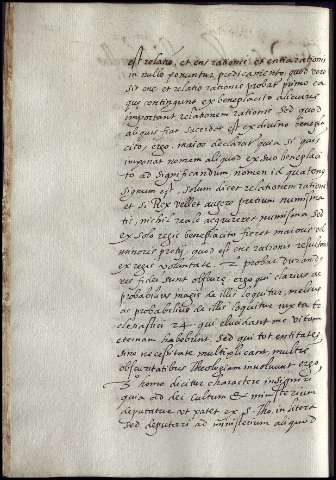 est relatio, et ens rationis, et entia rationis
in nullo ponuntur predicamento, quod vero
sit ens et relatio rationis probat primo ea
que contingunt ex beneplacito alicuius
important relationem rationis sed quod
aliquis fiat sacerdos est ex divino benepla
cito, ergo. maior declarat quia si quis
imponat nomen alicui ex suo beneplaci
to ad significandum nomen id quatenus
signum est, solum dicet relationem rationis
et si Rex vellet augere pretium numisma
tis, nichil reale acquireret numisma sed
ex solo regis beneplacito fieret maioris vel
minoris pretij, quod est ens rationis resultans
ex regis voluntate. 2. probat Durandus
res fidei sunt obscure, ergo qui clarius ac
probabilius magis de illis loquitur, melius
ac probabilius de illis loquitur iuxta ec
clesiastici 24. qui elucidant me vitam
eternam habebunt, sed qui tot entitates
sine necessitate multiplicant, multis
obscuritatibus Theologiam involvunt ergo,
3. homo dicitur charactere insigniri
quia ad dei cultum et ministerium
deputatur ut patet ex S. Tho. in litera
sed deputari ad ministerium aliquod